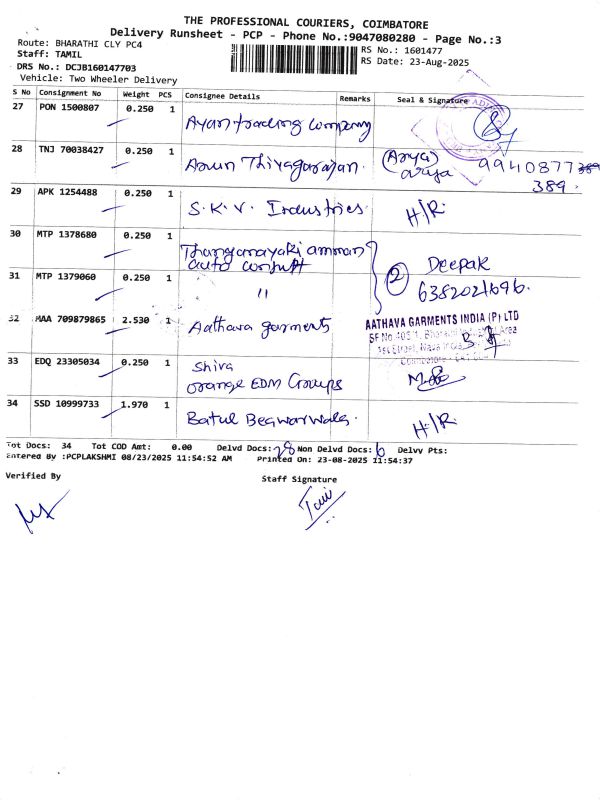 THE PROFESSIONAL COURIERS, COIMBATORE
Delivery Runsheet - PCP - Phone No.:9047080280 - Page No.:3
Route: BHARATHI CLY PC4
Staff: TAMIL
DRS No.: DCJB160147703
Vehicle: Two Wheeler Delivery
RS No.: 1601477
RS Date: 23-Aug-2025
S No Consignment No Weight PCS Consignee Details Remarks Seal & Signature
27 PON 1500807 0.250 1 Ayan trading Company
28 TNJ 70038427 0.250 1 Arun Thiyagarajan. (Arya) arya 9940877389 389.
29 APK 1254488 0.250 1 S.K.V. Industries. H/R.
30 MTP 1378680 0.250 1 Thanganayaki amman auto consult
31 MTP 1379060 0.250 1 " 2 Deepak 6382021696.
32 MAA 709879865 2.530 1 Aathava garments
AATHAVA GARMENTS INDIA (P) LTD
33 EDQ 23305034 0.250 1 Shiva orange EDM Groups
34 SSD 10999733 1.970 1 Batul Beawarwala. H/R.
Tot Docs: 34 Tot COD Amt: 0.00 Delvd Docs: 28 Non Delvd Docs: 6 Delvy Pts:
Entered By :PCPLAKSHMI 08/23/2025 11:54:52 AM Printed On: 23-08-2025 11:54:37
Verified By
Staff Signature